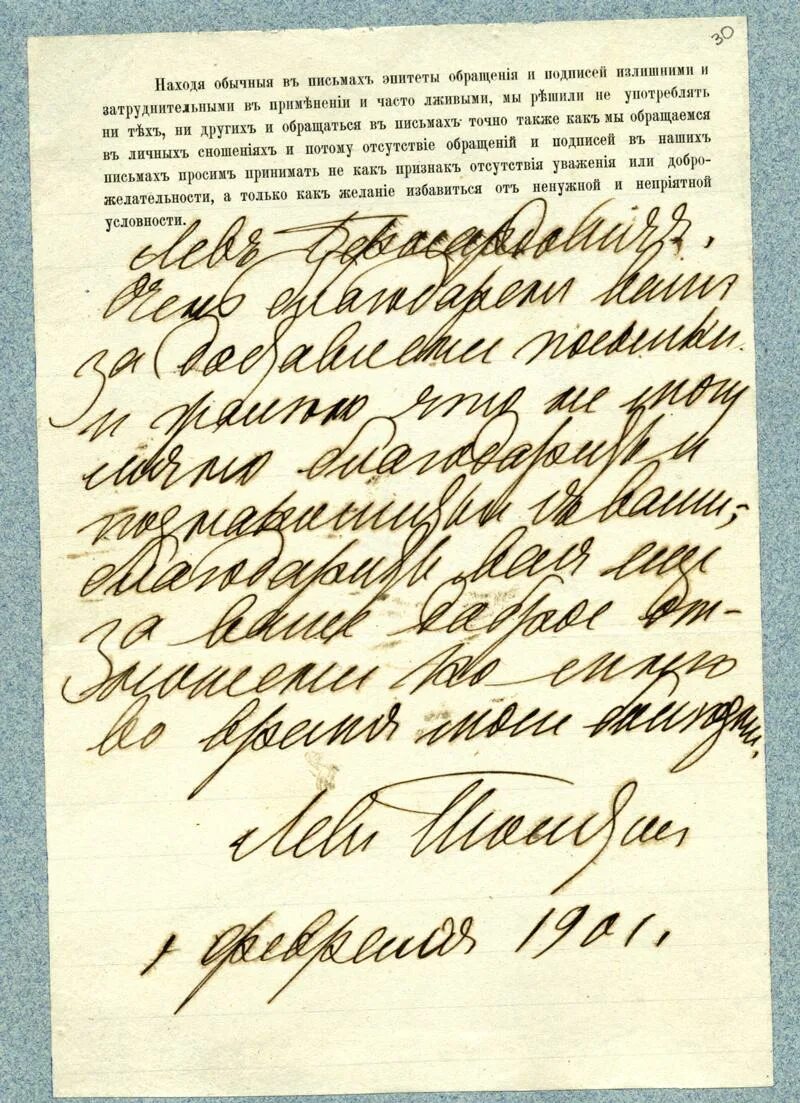 30
Находя обычныя въ письмахъ эпитеты обращенія и подписей излишними и
затруднительными въ примѣненіи и часто лживыми, мы рѣшили не употреблять
ни тѣхъ, ни другихъ и обращаться въ письмахъ точно также какъ мы обращаемся
въ личныхъ сношеніяхъ и потому отсутствіе обращеній и подписей въ нашихъ
письмахъ просимъ принимать не какъ признакъ отсутствія уваженія или добро-
желательности, а только какъ желаніе избавиться отъ ненужной и непріятной
условности.
Левъ Бернардовичъ.
Очень благодаренъ вамъ
за доставленіе посылки
и жалѣю что не могу
лично благодарить и
познакомиться съ вами;
благодарить васъ еще
за ваше доброе от-
ношеніе ко мнѣ
во время моей болѣзни.
Левъ Толстой
февраля 1901.